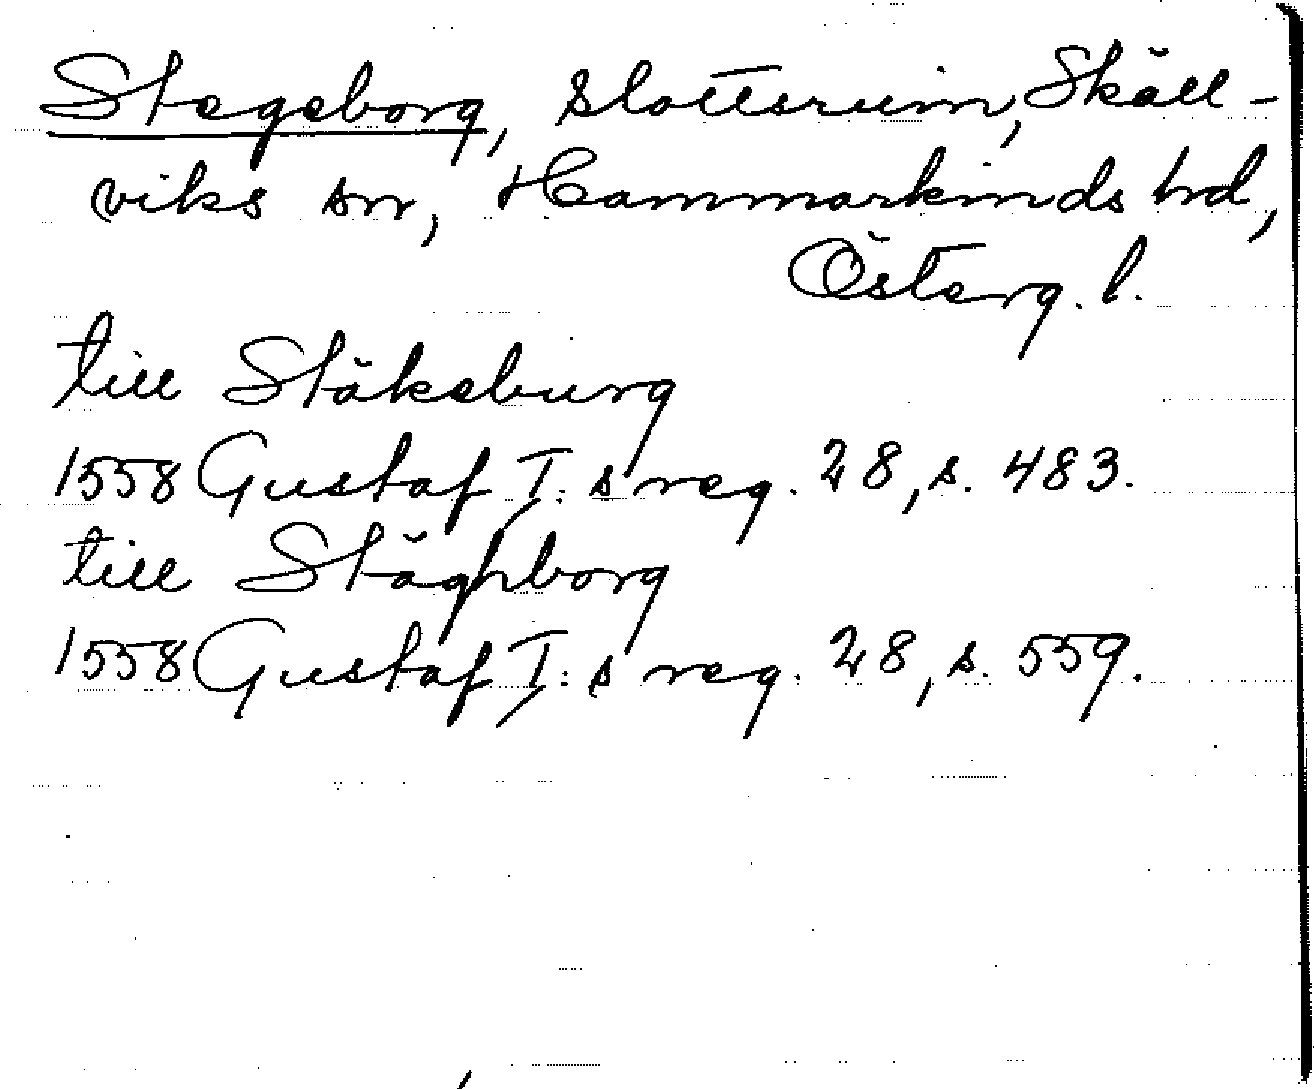 Stegeborg, slottsruin, Skäll-
viks sn, Hammarkinds hd,
Österg. l.
till Stäkeburg
1558 Gustaf I:s reg. 28, s. 483.
till Stäghborg
1558 Gustaf I:s reg. 28, s. 559.